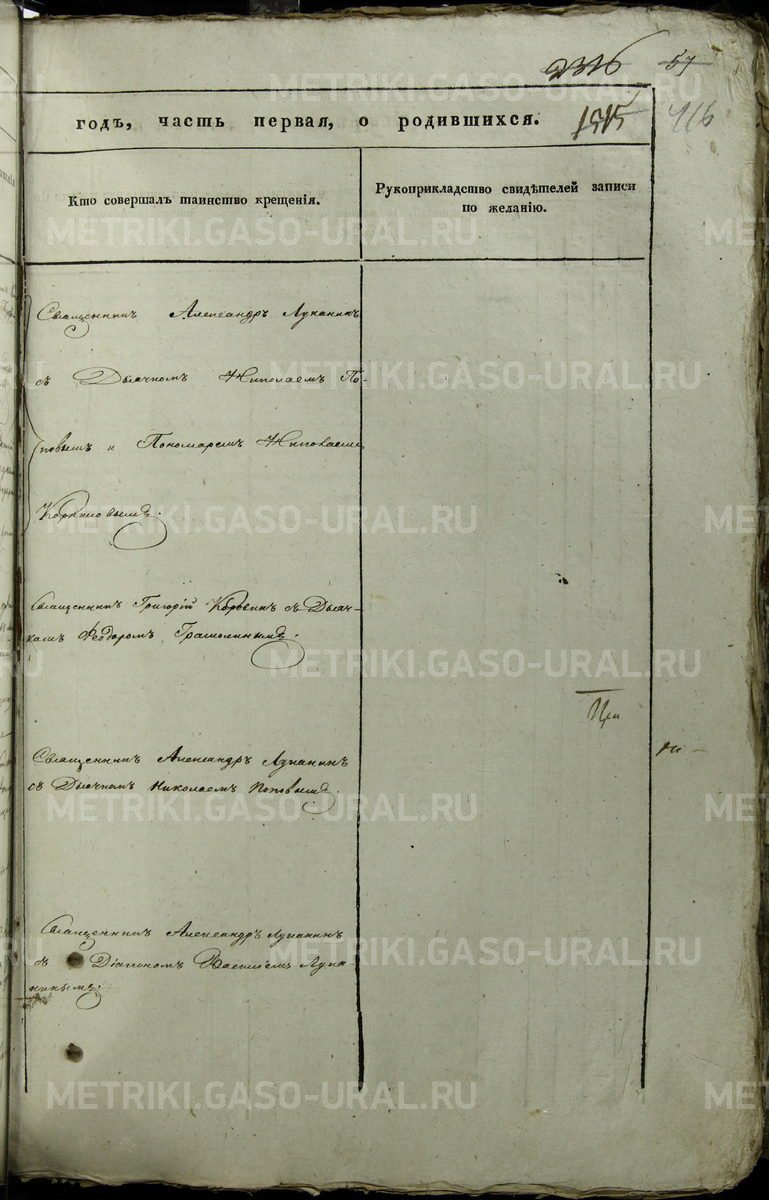 2316 57
годъ, часть первая, о родившихся. 1515 416
Кто совершалъ таинство крещенія.
Рукоприкладство свидѣтелей записи
по желанію.
Священникъ Александръ Луканинъ
съ Дьячкомъ Николаемъ По-
повымъ и Пономаремъ Николаемъ
Корниловымъ.
Священникъ Григорій Коровинъ съ Дьяч-
комъ Феодоромъ
Священникъ Александръ Луканинъ
съ Дьячкомъ Николаемъ Поповымъ.
Священникъ Александръ Луканинъ
съ Діакономъ Василіемъ Лука-
нинымъ.
METRIKI.GASO-URAL.RU